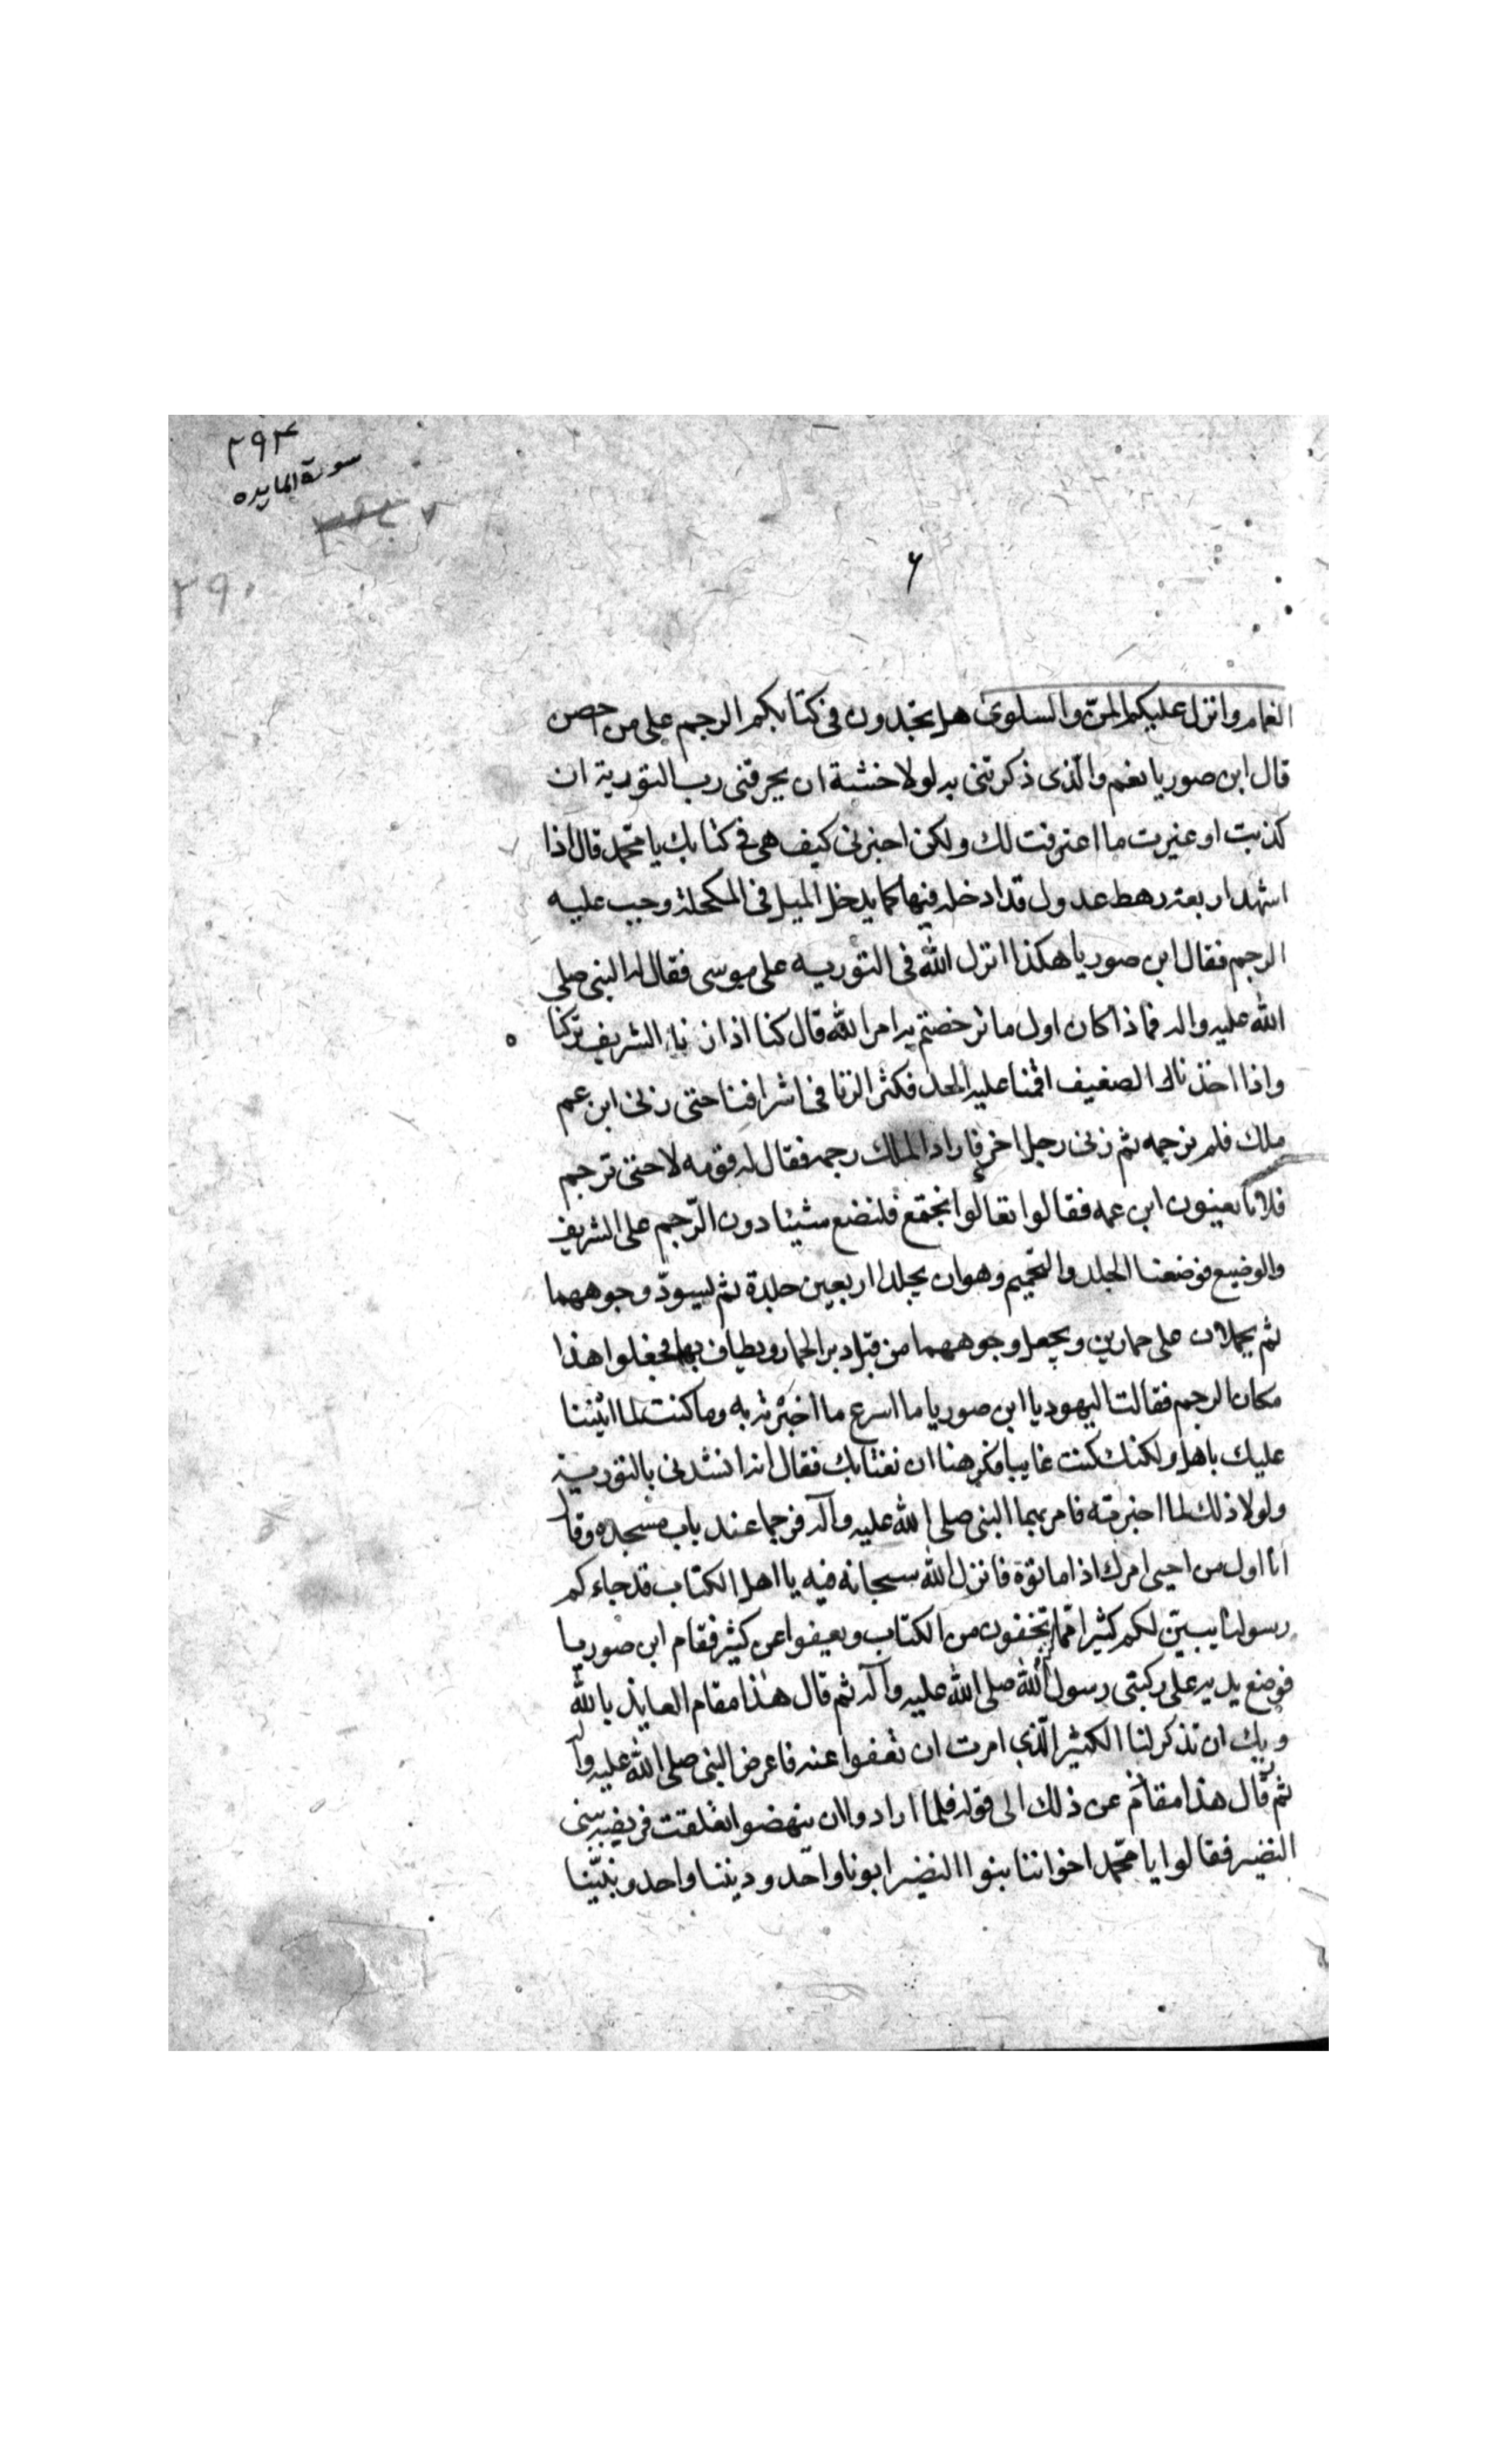 ٢٩٣
سورة المايده
٢٩٠
۶
الغمام وانزل عليكم المنّ والسلوى هل تجدون فى كتابكم الرجم على من احصن
قال ابن صوريا نعم والّذى ذكرتنى به لولا خشية ان يحرقنى رب التورية ان
كذبت او غيرت ما اعترفت لك ولكن اخبرنى كيف هى فى كتابك يا محمّد قال اذا
اشهد اربعة رهط عدول قد ادخله فيها كما يدخل الميل فى المكحلة وجب عليه
الرجم فقال ابن صوريا هكذا انزل الله فى التوريه على موسى فقال له النبى صلى
الله عليه واله فماذا كان اول ما ترخصتم به امر الله قال كنا اذا زنا الشريف تركنا
واذا اخذنا الضعيف اقمنا عليه الحد فكثر الزنا فى اشرافنا حتى زنى ابن عم
ملك فلم نرجمه ثم زنى رجل اخر فاراد الملك رجمه فقال له قومه لا حتى ترجم
فلانا يعنون ابن عمه فقالوا تعالوا نجتمع فلنضع شيئا دون الرّجم على الشريف
والوضيع فوضعنا الجلد والتحميم وهو ان يجلدا اربعين جلدة ثم يسودّ وجوههما
ثم يحملان على حمارين ويجعل وجوههما من قبل دبر الحمار ويطاف بهما فجعلوا هذا
مكان الرجم فقالت اليهود يا ابن صوريا ما اسرع ما اخبرته به وما كنت لما اثنينا
عليك باهل ولكنك كنت غايبا فكرهنا ان نغتابك فقال انه انشدنى بالتورية
ولولا ذلك لما اخبرته فامر بهما النبى صلى الله عليه وآله فرجما عند باب مسجده وقال
انا اول من احيى امرك اذا ماتوه فانزل الله سبحانه فيه يا اهل الكتاب قد جاءكم
رسولنا يبيّن لكم كثيرا ممّا تخفون من الكتاب ويعفوا عن كثير فقام ابن صوريا
فوضع يديه على ركبتى رسول الله صلى الله عليه وآله ثم قال هذا مقام العايذ بالله
وبك ان تذكر لنا الكثير الّذى امرت ان تعفوا عنه فاعرض النبى صلى الله عليه وآله
ثم قال هذا مقام عن ذلك الى قوله فلما ارادوا ان ينهضوا تعلقت قريضة ببنى
النضير فقالوا يا محمّد اخواننا بنوا النضير ابونا واحد وديننا واحد ونبيّنا